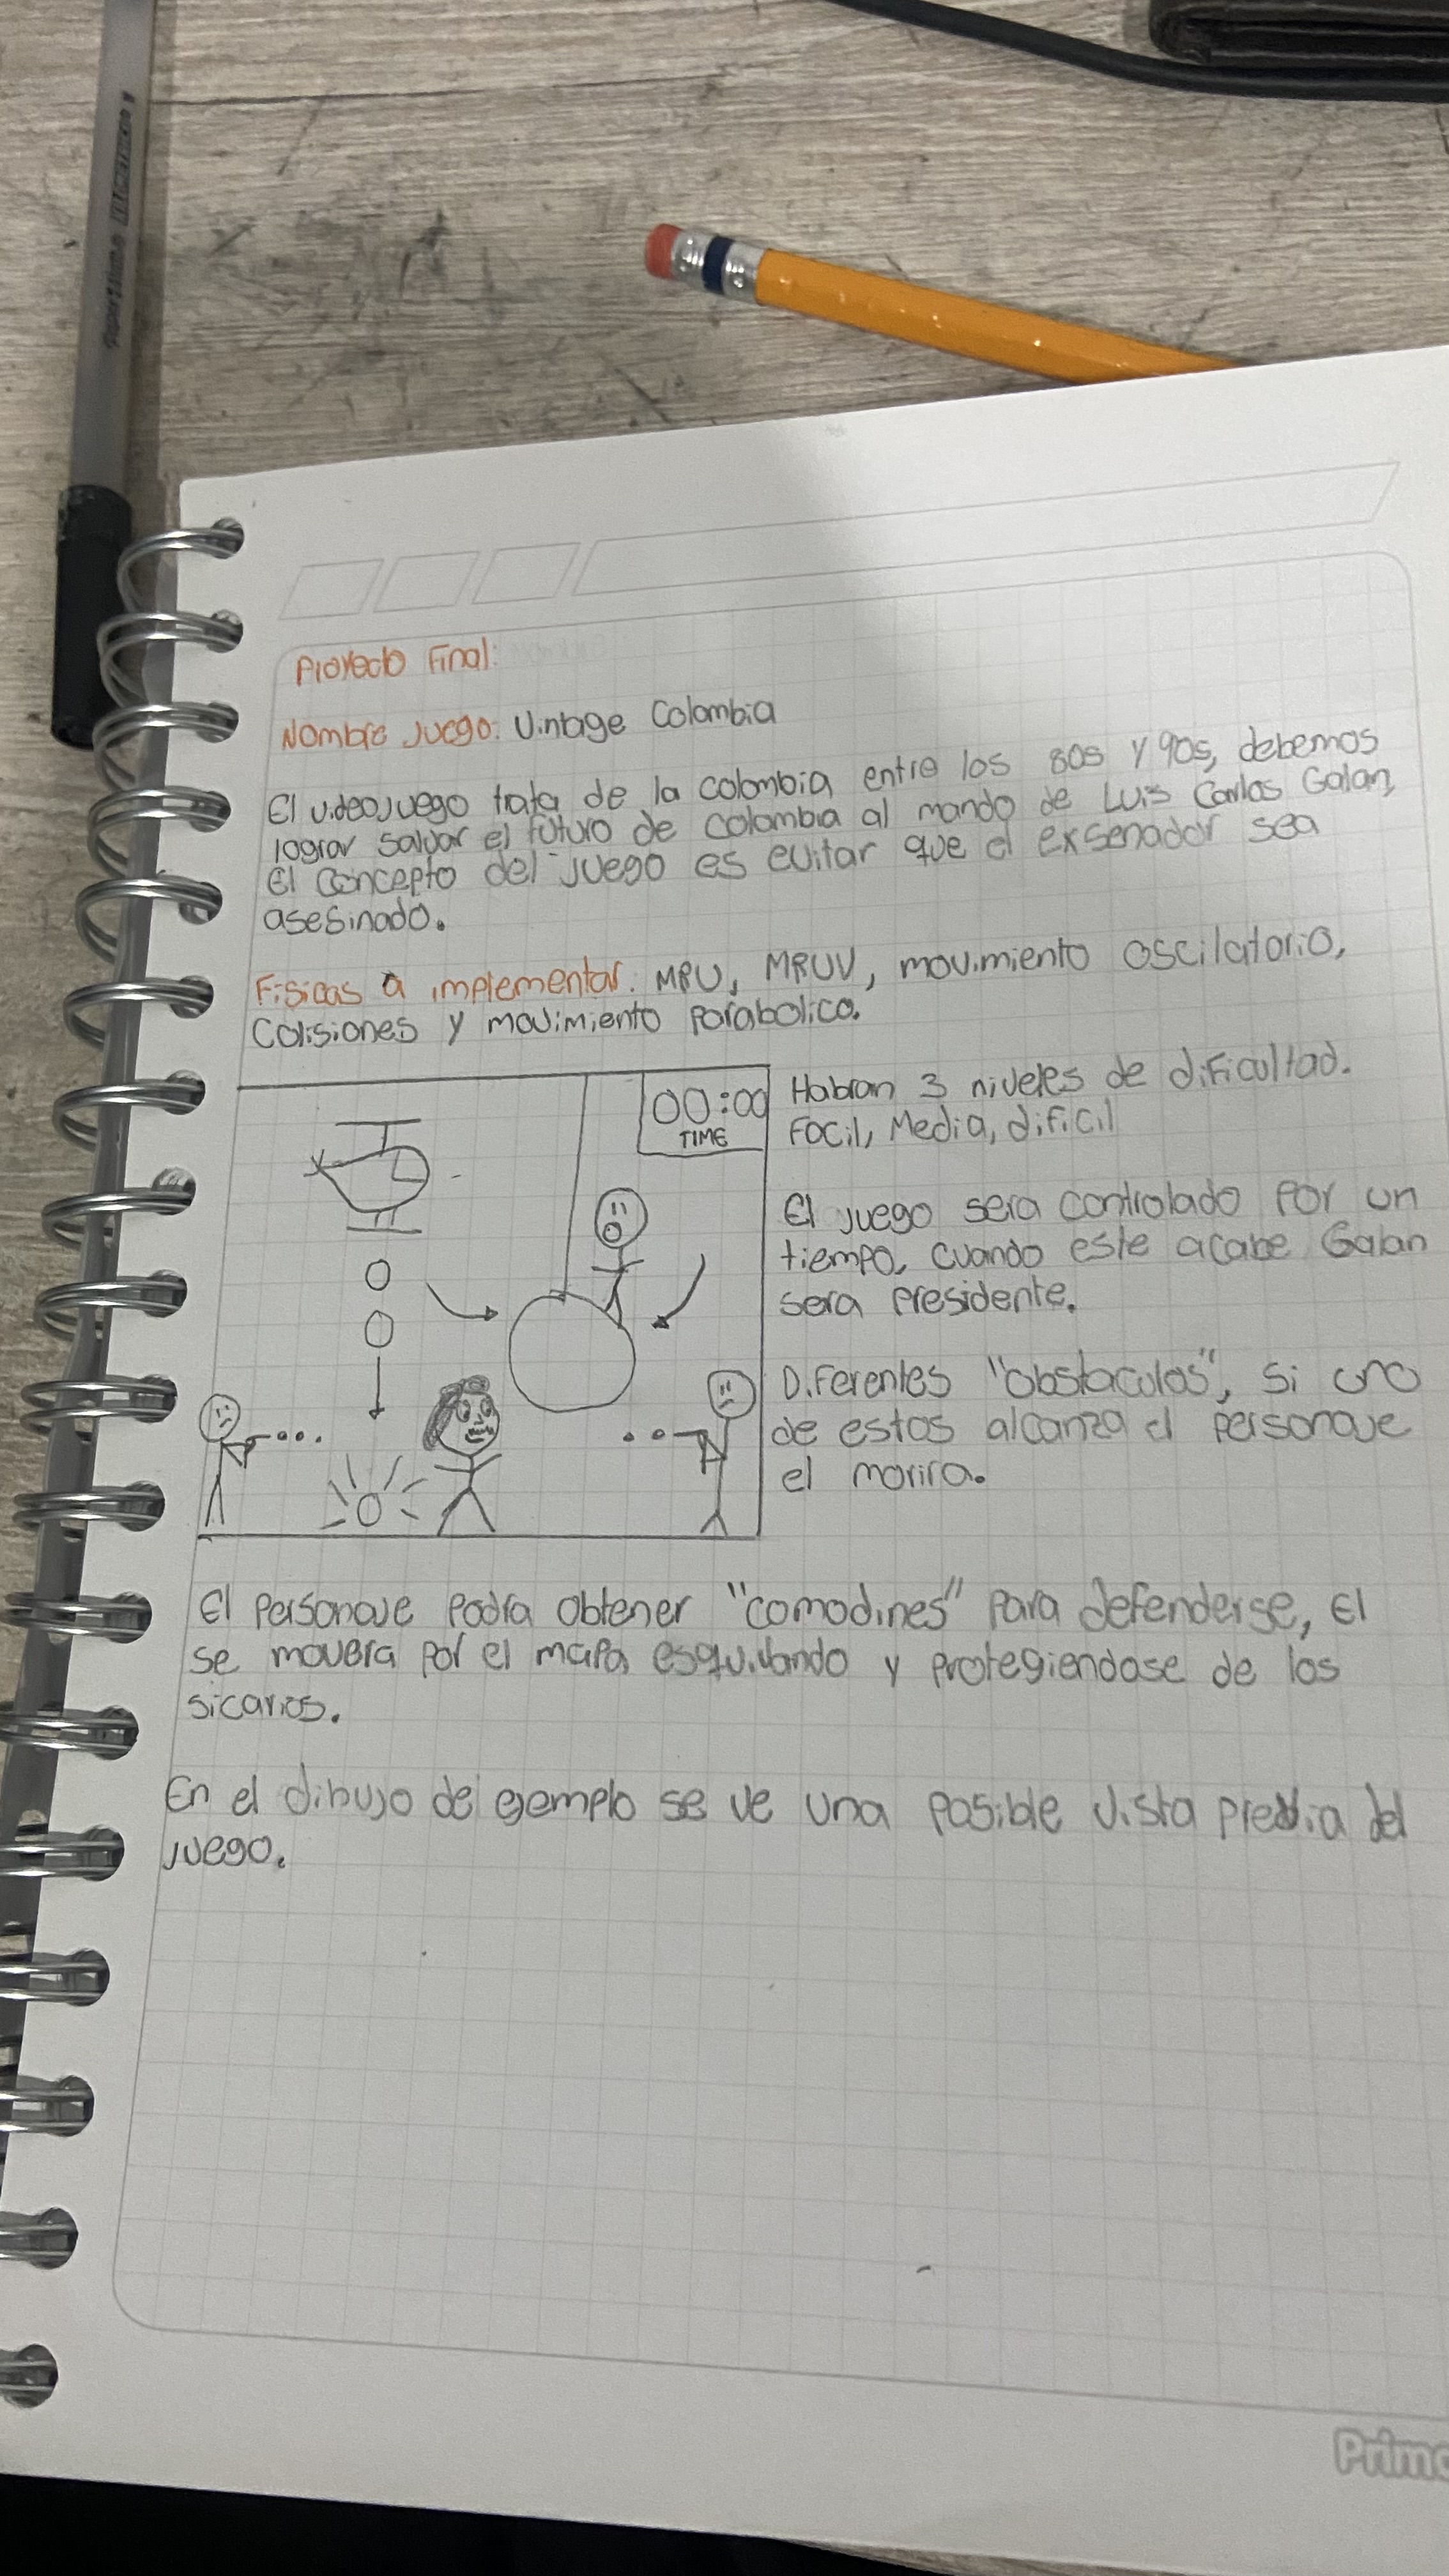 Proyecto Final:
Nombre Juego: Vintage Colombia
El videojuego trata de la colombia entre los 80s y 90s, debemos
lograr salvar el futuro de colombia al mando de Luis Carlos Galan,
El concepto del juego es evitar que el exsenador sea
asesinado.
Fisicas a implementar: MRU, MRUV, movimiento oscilatorio,
Colisiones y movimiento parabolico.
00:00
TIME
Habran 3 niveles de dificultad.
Facil, Media, dificil
El juego sera controlado por un
tiempo, cuando este acabe Galan
sera presidente.
Diferentes "obstaculos", si uno
de estos alcanza el personaje
el morira.
El personaje podra obtener "comodines" para defenderse, El
se movera por el mapa esquivando y protegiendose de los
sicarios.
En el dibujo de ejemplo se ve una posible vista previa del
juego.